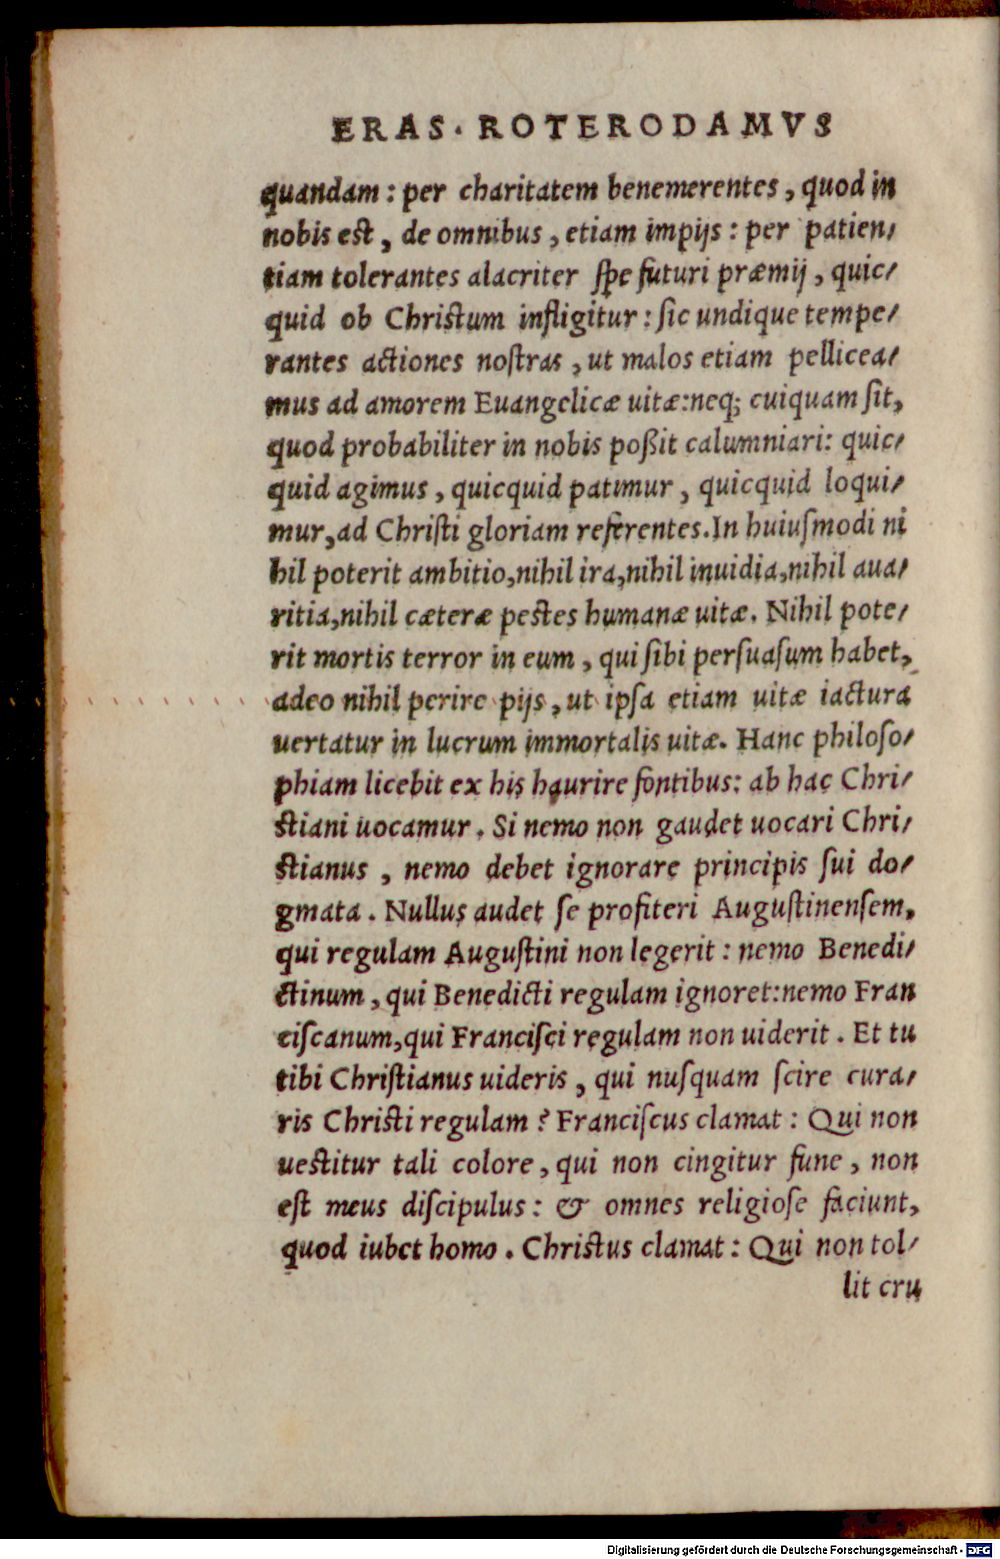 ERAS. ROTERODAMVS
quandam: per charitatem benemerentes, quod in
nobis est, de omnibus, etiam impijs: per patien/
tiam tolerantes alacriter ſpe futuri præmij, quic/
quid ob Christum infligitur: ſic undique tempe/
rantes actiones noſtras, ut malos etiam pellicea/
mus ad amorem Euangelicæ uitæ: neq; cuiquam ſit,
quod probabiliter in nobis poßit calumniari: quic/
quid agimus, quicquid patimur, quicquid loqui/
mur, ad Chriſti gloriam referentes. In huiuſmodi ni
hil poterit ambitio, nihil ira, nihil inuidia, nihil aua/
ritia, nihil cæteræ pestes humanæ uitæ. Nihil pote/
rit mortis terror in eum, qui ſibi perſuaſum habet,
adeo nihil perire pijs, ut ipſa etiam uitæ iactura
uertatur in lucrum immortalis uitæ. Hanc philoſo/
phiam licebit ex his haurire fontibus: ab hac Chri/
stiani uocamur. Si nemo non gaudet uocari Chri/
stianus, nemo debet ignorare principis ſui do/
gmata. Nullus audet ſe profiteri Auguſtinenſem,
qui regulam Auguſtini non legerit: nemo Benedi/
ctinum, qui Benedicti regulam ignoret: nemo Fran
ciſcanum, qui Franciſci regulam non uiderit. Et tu
tibi Chriſtianus uideris, qui nuſquam ſcire cura/
ris Christi regulam? Franciſcus clamat: Qui non
uestitur tali colore, qui non cingitur fune, non
eſt meus diſcipulus: & omnes religioſe faciunt,
quod iubet homo. Christus clamat: Qui non tol/
lit cru
Digitalisierung gefördert durch die Deutsche Forschungsgemeinschaft - DFG